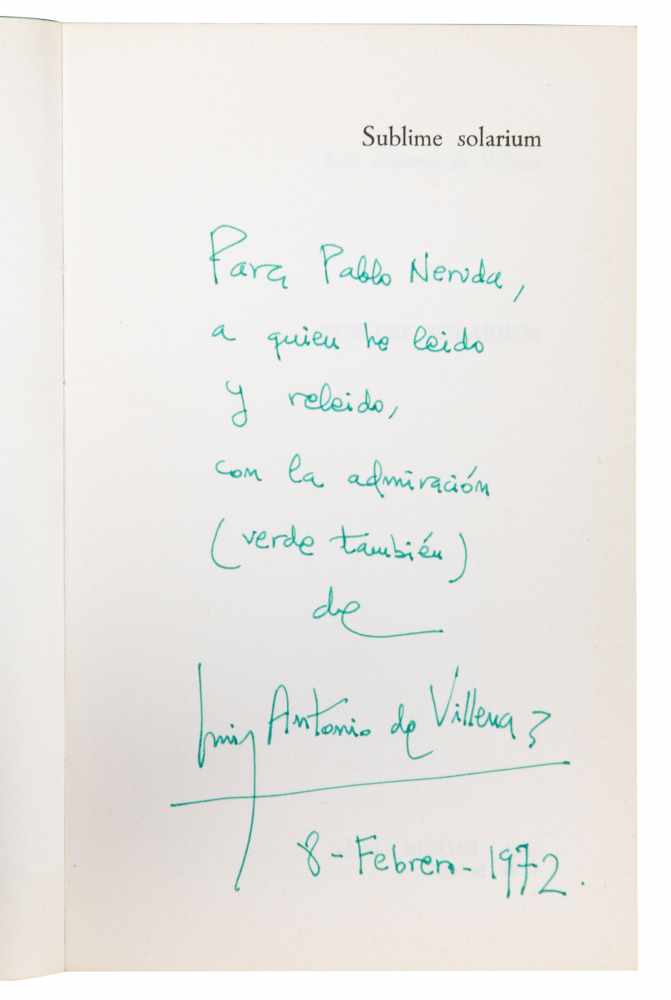 Sublime solarium
Para Pablo Neruda,
a quien he leido
y releido,
con la admiración
(verde también)
de
Luis Antonio de Villena
8 - Febrero - 1972.